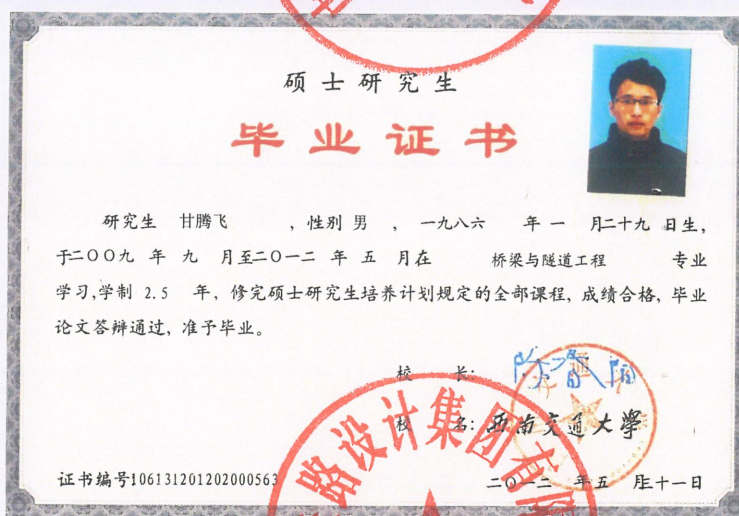 硕士研究生
毕业证书
研究生 甘腾飞 ,性别 男 , 一九八六 年 一 月二十九 日生,
于二〇〇九 年 九 月至二〇一二 年 五 月在 桥梁与隧道工程 专业
学习,学制 2.5 年, 修完硕士研究生培养计划规定的全部课程, 成绩合格, 毕业
论文答辩通过, 准予毕业。
校 长:
校 名: 西南交通大學
证书编号106131201202000563
二〇一二 年 五 月三十一日
路设计集团有限